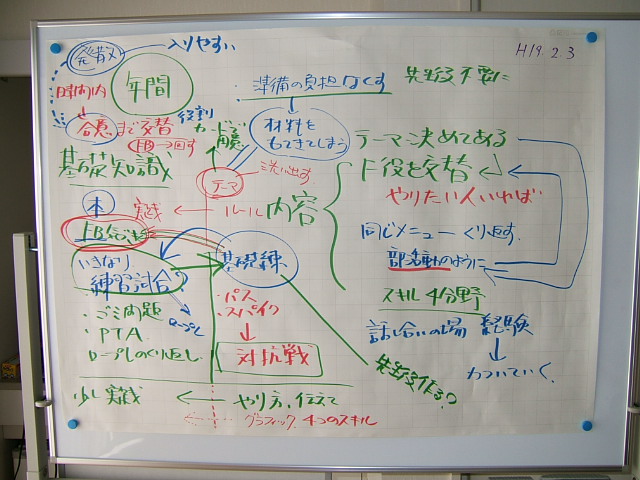 発散
入りやすい
H19.2.3
年間
時間内
・準備の負担なくす
合意まで交替
役割
カードで用意
材料をもってきてしまう
テーマ決めてある
基礎知識
テーマ
洗い出す
F役を交替
やりたい人いれば
本
実践
ルール
内容
同じメニューくり返す
いきなり練習試合
基礎練
部活動のように
ロープレ
・パス
・スパイク
スキル4分野
・ゴミ問題
・PTA
ロープレのくり返し
対抗戦
話し合いの場
経験
先生役作る?
力ついていく。
少し実践
やり方、伝えて
グラフィック、4つのスキル